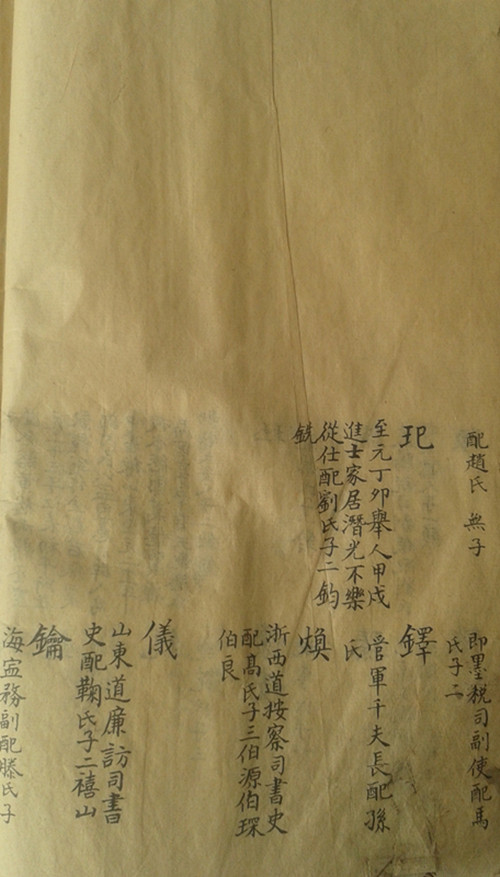 配趙氏 無子
玘
至元丁夘舉人甲戌
進士家居潛光不樂
從仕配劉氏子二鈞
銑
即墨税司副使配馬
氏子二
鐸
管軍千夫長配孫
氏
煥
浙西道按察司書史
配髙氏子三伯源伯琛
伯良
儀
山東道廉訪司書
史配鞠氏子二禧山
鑰
海寍務副配滕氏子